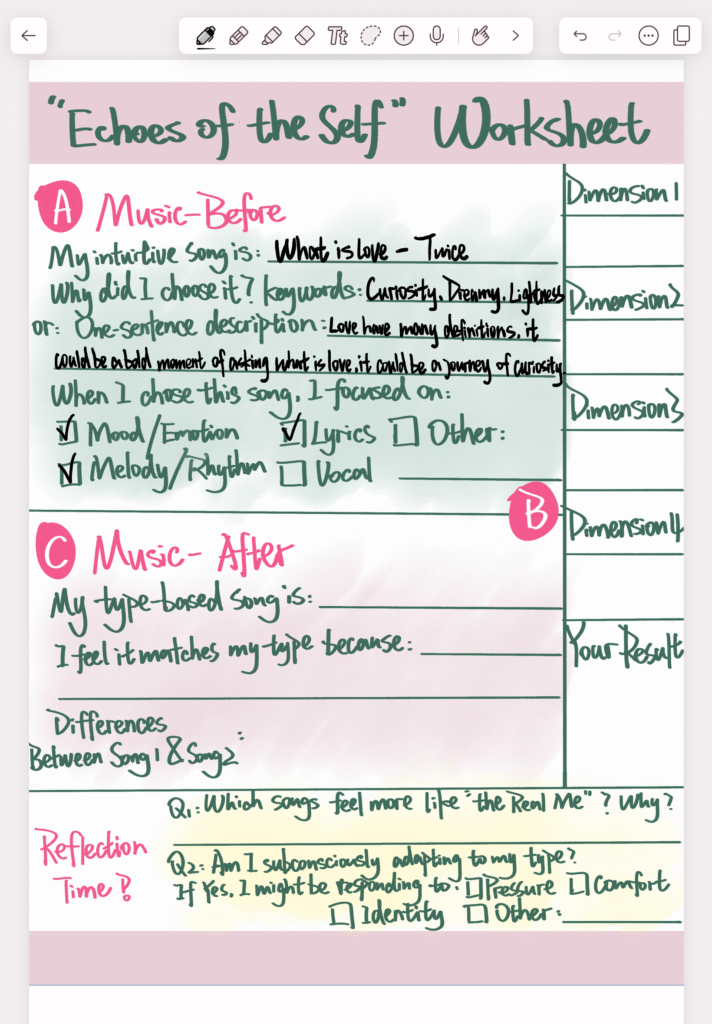 "Echoes of the Self" Worksheet
A Music-Before
My intuitive song is: What is love - Twice
Why did I choose it? keywords: Curiosity, Dreamy, Lightness
or: One-sentence description: Love have many definitions, it
could be a bold moment of asking what is love, it could be a journey of curiosity
When I chose this song, I focused on:
Mood/Emotion Lyrics Other:
Melody/Rhythm Vocal
B
Dimension 1
Dimension 2
Dimension 3
Dimension 4
Your Result
C Music-After
My type-based song is:
I feel it matches my type because:
Differences
Between Song 1 & Song 2 :
Reflection
Time!
Q1: Which songs feel more like "the Real Me"? Why?
Q2: Am I subconsciously adapting to my type?
If Yes, I might be responding to: Pressure Comfort
Identity Other: